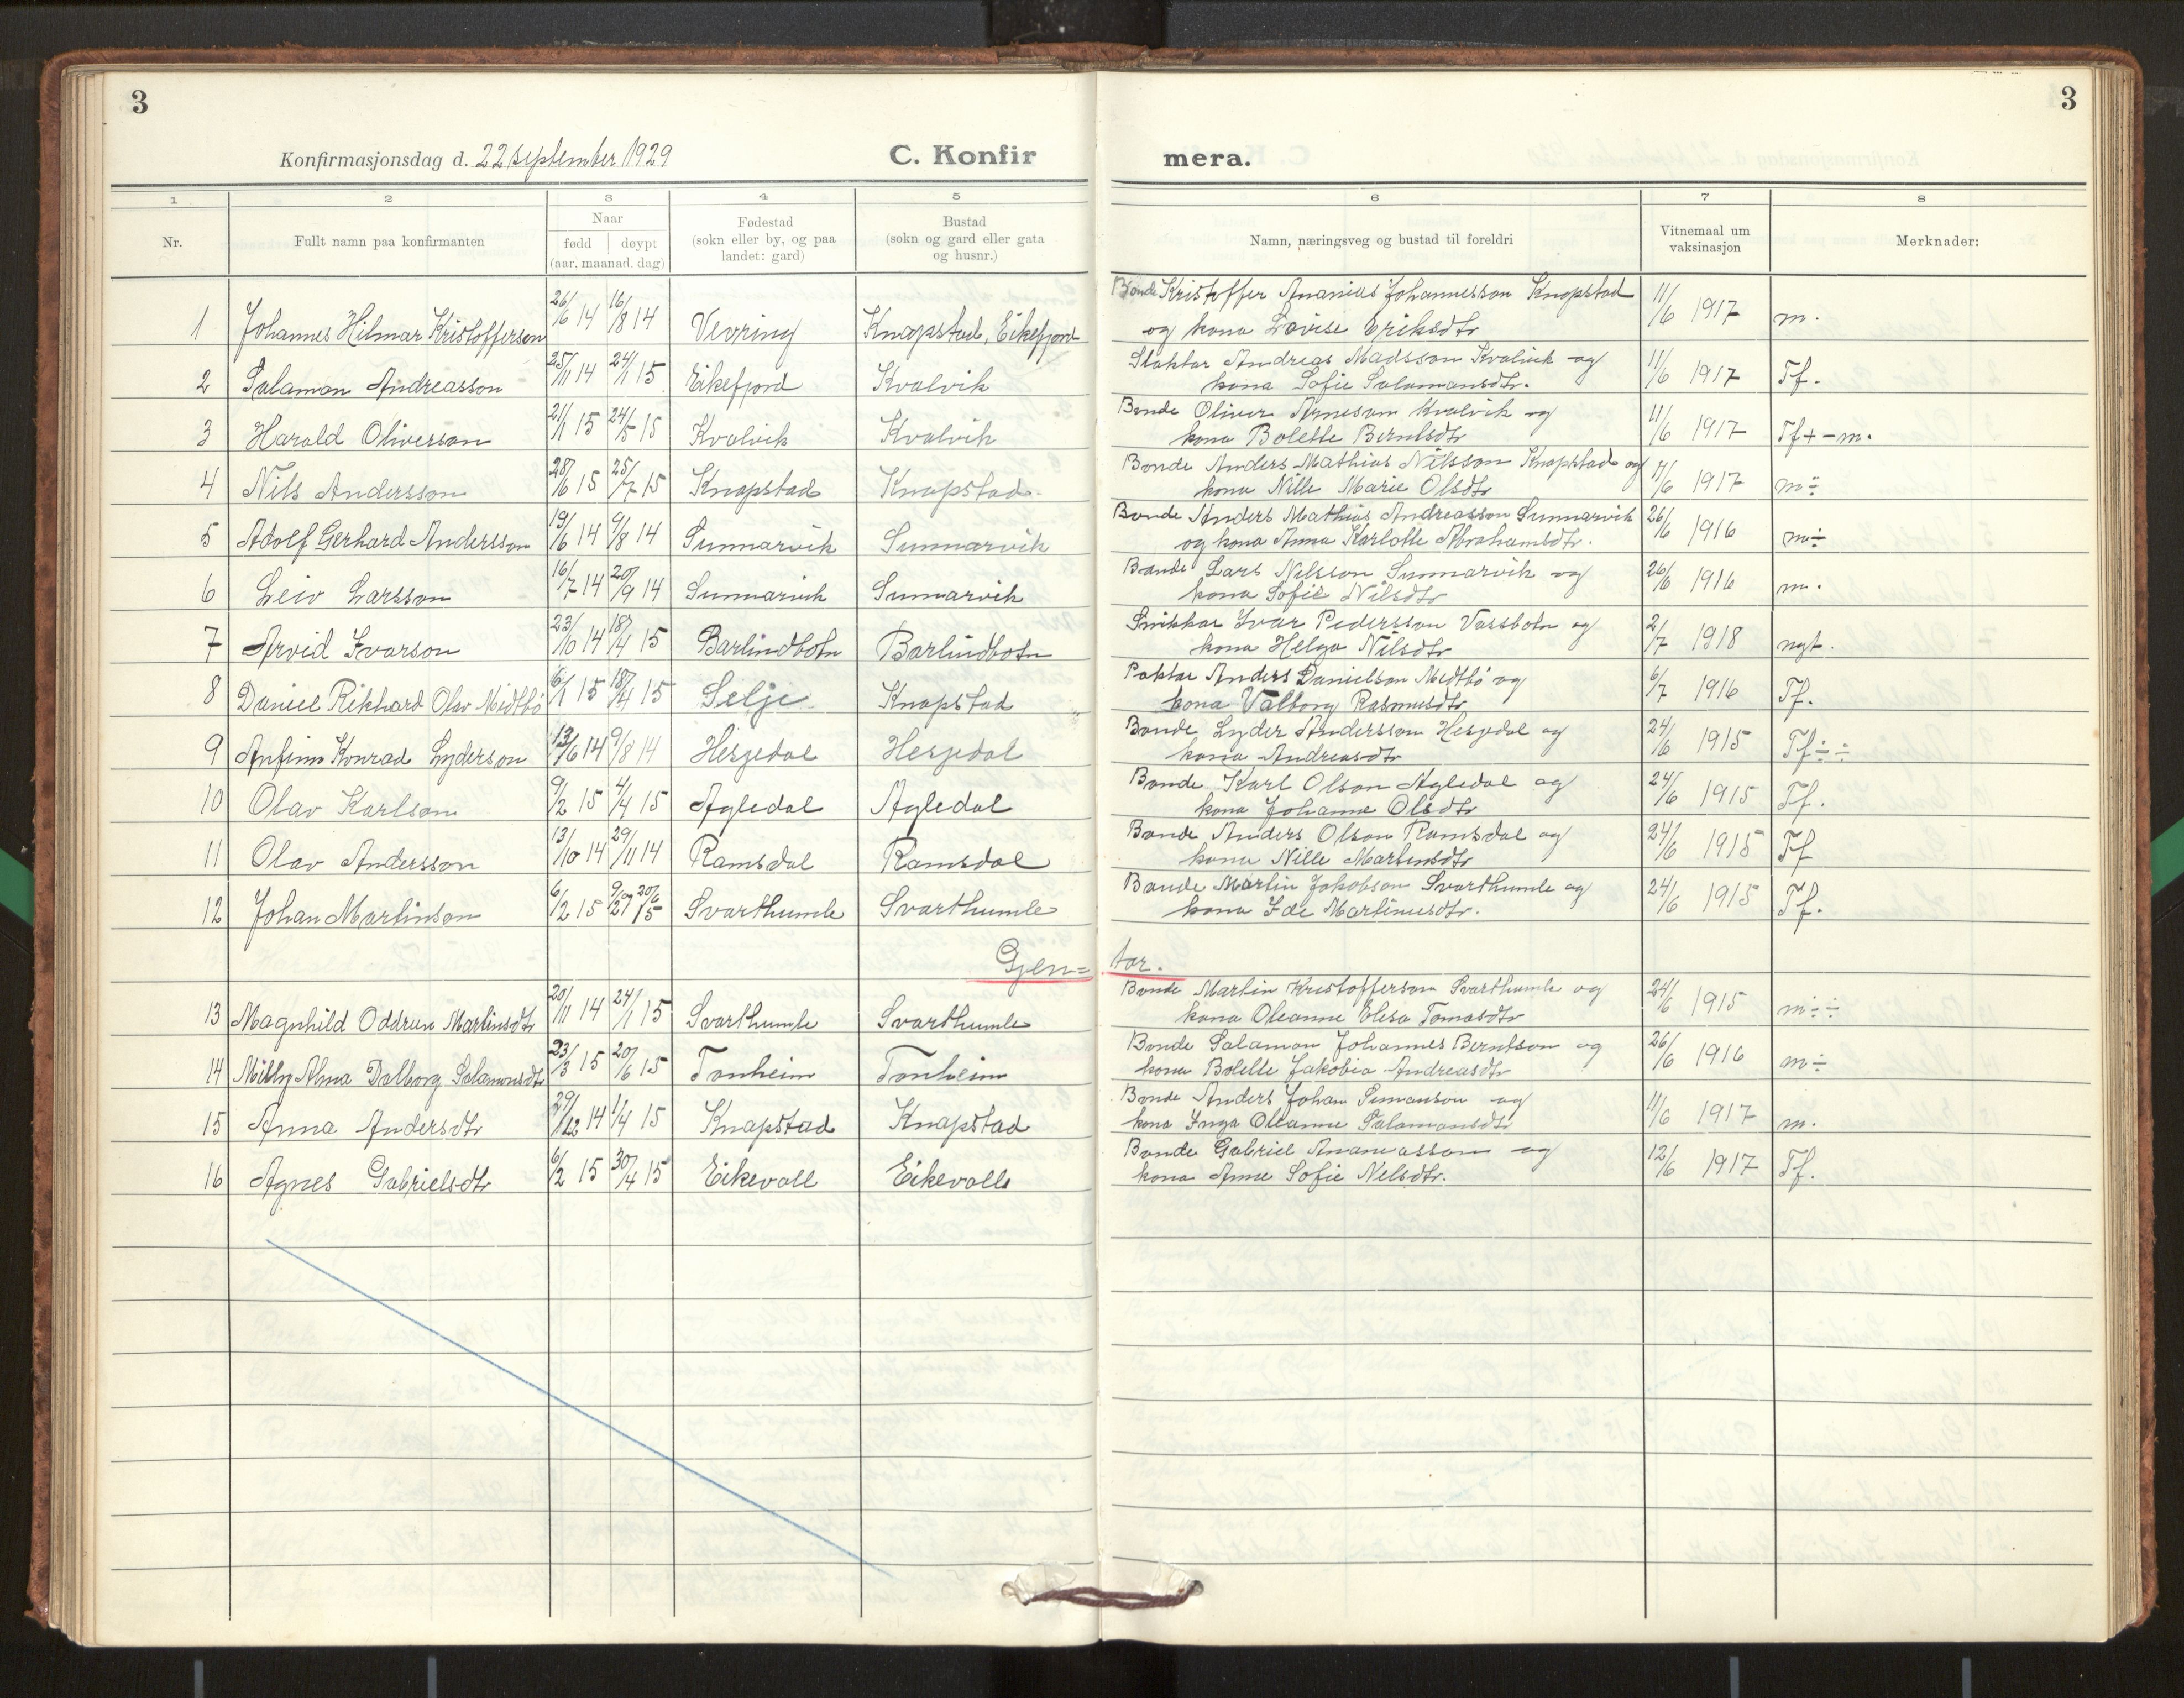 3
3
Konfirmasjonsdag d. 22 september 1929
C. Konfir
mera.
1 2 3 4 5 6 7 8
Nr.
Fullt namn paa konfirmanten
Naar
fødd døypt
(aar, maanad. dag)
Fødestad
(sokn eller by, og paa
landet: gard)
Bustad
(sokn og gard eller gata
og husnr.)
Namn, næringsveg og bustad til foreldri
Vitnemaal um
vaksinasjon
Merknader:
1 Johannes Hilmar Kristofferson 26/6 14 16/8 14 Vevring Knapstad, Eikefjord Bonde Kristoffer Ananias Johannesson Knapstad 11/6 1917 m.
og kona Lovise Eriksdtr
2 Salamon Andreasson 25/11 14 24/1 15 Eikefjord Kvalvik Slaktar Andreas Madsson Kvalvik og 11/6 1917 Tf.
kona Sofie Salamonsdtr.
3 Harald Oliverson 21/1 15 24/5 15 Kvalvik Kvalvik Bonde Oliver Arneson Kvalvik og 11/6 1917 Tf + - m.
kona Bolette Berntsdtr
4 Nils Andersson 28/6 15 25/7 15 Knapstad Knapstad Bonde Anders Mathias Nilsson Knapstad og 11/6 1917 m ÷
kona Nille Marie Olsdtr
5 Adolf Gerhard Andersson 19/6 14 9/8 14 Sunnarvik Sunnarvik Bonde Anders Mathias Andreasson Sunnarvik 26/6 1916 m ÷
og kona Anna Karlotte Abrahamsdtr.
6 Leiv Larsson 16/7 14 20/9 14 Sunnarvik Sunnarvik Bonde Lars Nilsson Sunnarvik og 26/6 1916 m.
kona Sofie Nilsdtr
7 Arvid Ivarson 23/10 14 18/4 15 Barlindbotn Barlindbotn Snikkar Ivar Pedersson Vassbotn og 2/7 1918 ngt.
kona Helga Nilsdtr
8 Daniel Rikhard Olav Midtbö 6/1 15 18/4 15 Selje Knapstad Paktar Anders Danielson Midtbö og 6/7 1916 Tf.
kona Valborg Rasmusdtr
9 Anfinn Konrad Lyderson 13/6 14 9/8 14 Hesjedal Hesjedal Bonde Lyder Andersson Hesjedal og 24/6 1915 Tf ÷ ÷
kona Andreasdtr
10 Olav Karlson 9/2 15 4/4 15 Agledal Agledal Bonde Karl Olson Agledal og 24/6 1915 Tf.
kona Johanne Olsdtr
11 Olav Andersson 13/10 14 29/11 14 Ramsdal Ramsdal Bonde Anders Olson Ramsdal og 24/6 1915 Tf
kona Nille Martinsdtr
12 Johan Martinson 6/2 15 20/6 15 Svarthumle Svarthumle Bonde Martin Jakobson Svarthumle og 24/6 1915 Tf.
kona Ide Martinusdtr.
Gjen=tor.
13 Magnhild Oddrun Martinsdtr 20/11 14 24/1 15 Svarthumle Svarthumle Bonde Martin Kristofferson Svarthumle og 24/6 1915 m ÷ ÷
kona Oleanne Elesa Tomasdtr
14 Milly Alma Dalborg Salamonsdtr 23/3 15 20/6 15 Tonheim Tonheim Bonde Salamon Johannes Berntson og 26/6 1916 m ÷
kona Bolette Jakobia Andreasdtr
15 Anna Andersdtr 29/12 14 1/4 15 Knapstad Knapstad Bonde Anders Johan Simonson og 11/6 1917 m.
kona Inga Oleanne Salamonsdtr
16 Agnes Gabrielsdtr 6/2 15 30/4 15 Eikevoll Eikevoll Bonde Gabriel Ananiasson og 12/6 1917 Tf.
kona Anne Sofie Nelsdtr.